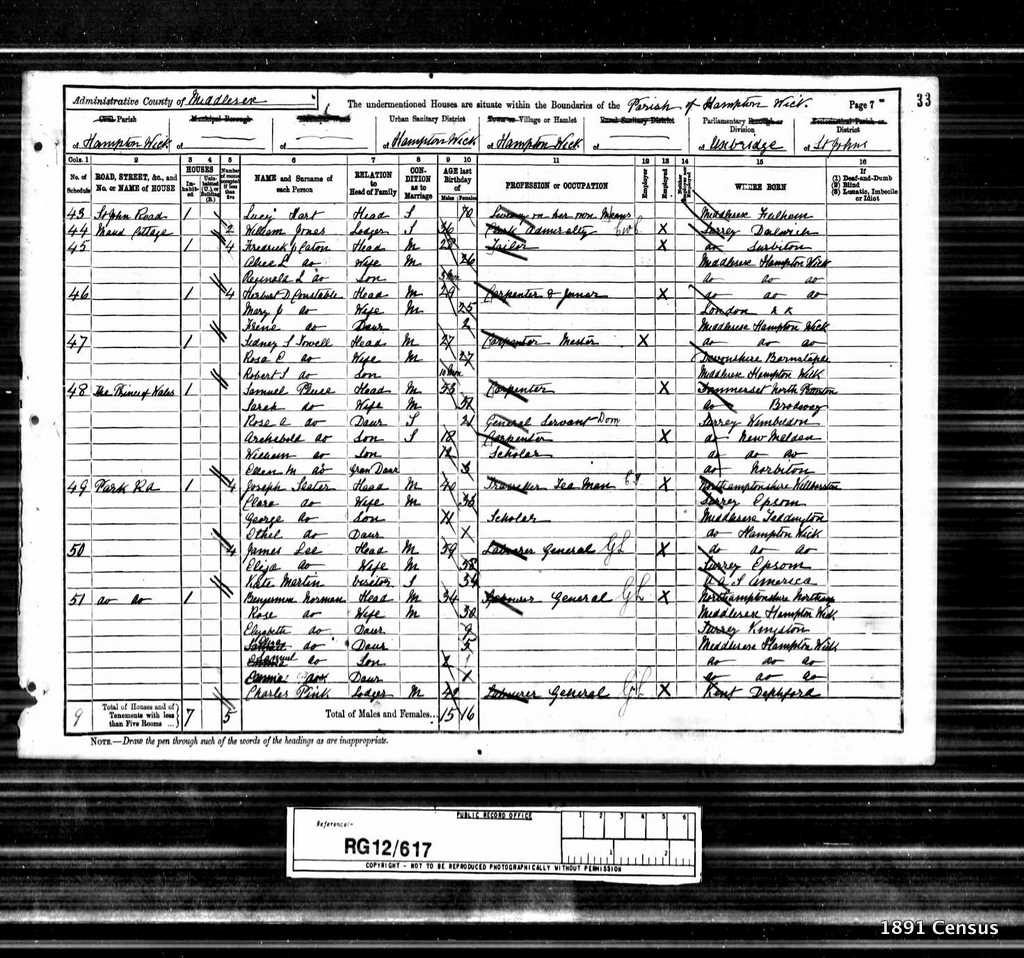 33
Administrative County of Middlesex
The undermentioned Houses are situate within the Boundaries of the Parish of Hampton Wick. Page 7
Civil Parish of Hampton Wick
Municipal Borough of
of
Urban Sanitary District of Hampton Wick
Town or Village or Hamlet of Hampton Wick
Rural Sanitary District of
Parliamentary Borough or Division of Uxbridge
Ecclesiastical Parish or District of St Johns
Cols. 1 2 3 4 5 6 7 8 9 10 11 12 13 14 15 16
No. of Schedule
ROAD, STREET, &c., and No. or NAME of HOUSE
HOUSES
Inhabited
Uninhabited (U.), or Building (B.)
Number of rooms occupied if less than five
NAME and Surname of each Person
RELATION to Head of Family
CONDITION as to Marriage
AGE last Birthday of
Males Females
PROFESSION or OCCUPATION
Employer
Employed
Neither Employer nor Employed
WHERE BORN
If
(1) Deaf-and-Dumb
(2) Blind
(3) Lunatic, Imbecile or Idiot
43 St John Road 1 Lucy Hart Head S 70 Living on her own Means Middlesex Fulham
44 Maud Cottage 2 William Jones Lodger S 36 Clerk Admiralty X Surrey Dulwich
45 1 4 Fredrick J Eaton Head M 28 Tailor X do Surbiton
Alice L do Wife M 26 Middlesex Hampton Wick
Reginald L do Son do do do
46 1 4 Herbert D Constable Head M 29 Carpenter & Joiner X do do do
Mary J do Wife M 25 London
Irene do Daur 2 Middlesex Hampton Wick
47 1 Sidney S Towell Head M 27 Carpenter Master X do do do
Rosa E do Wife M 27 Devonshire Barnstaple
Robert S do Son Middlesex Hampton Wick
48 The Prince of Wales 1 Samuel Head M 53 Carpenter X Sommerset North
Sarah do Wife M do Broadway
Rose A do Daur S 21 General Servant Dom Surrey Wimbledon
Archibald do Son S 18 Carpenter X do New Malden
William do Son 12 Scholar do do do
Ellen M do Gran Daur 3 do Norbiton
49 Park Rd 1 4 Joseph Head M 40 Tea Man X Northamptonshire
Clara do Wife M Surrey Epsom
George do Son 11 Scholar Middlesex Teddington
Ethel do Daur X do Hampton Wick
50 4 James Lee Head M 59 Labourer General GL X do do do
Eliza do Wife M 58 Surrey Epsom
Kate Martin Visitor S U.S America
51 do do 1 Benjamin Norman Head M 34 Labourer General GL X Northamptonshire
Rose do Wife M 30 Middlesex Hampton Wick
Elizabeth do Daur 9 Surrey Kingston
do Daur 5 Middlesex Hampton Wick
do Son 2 do do do
do Daur X do do do
Charles Pink Lodger M Labourer General GL X Kent Deptford
9 Total of Houses and of Tenements with less than Five Rooms 7 5 Total of Males and Females... 15 16
NOTE.—Draw the pen through such of the words of the headings as are inappropriate.
PUBLIC RECORD OFFICE
Reference:-
RG12/617
1 2 3 4 5 6
1 2
COPYRIGHT - NOT TO BE REPRODUCED PHOTOGRAPHICALLY WITHOUT PERMISSION
1891 Census